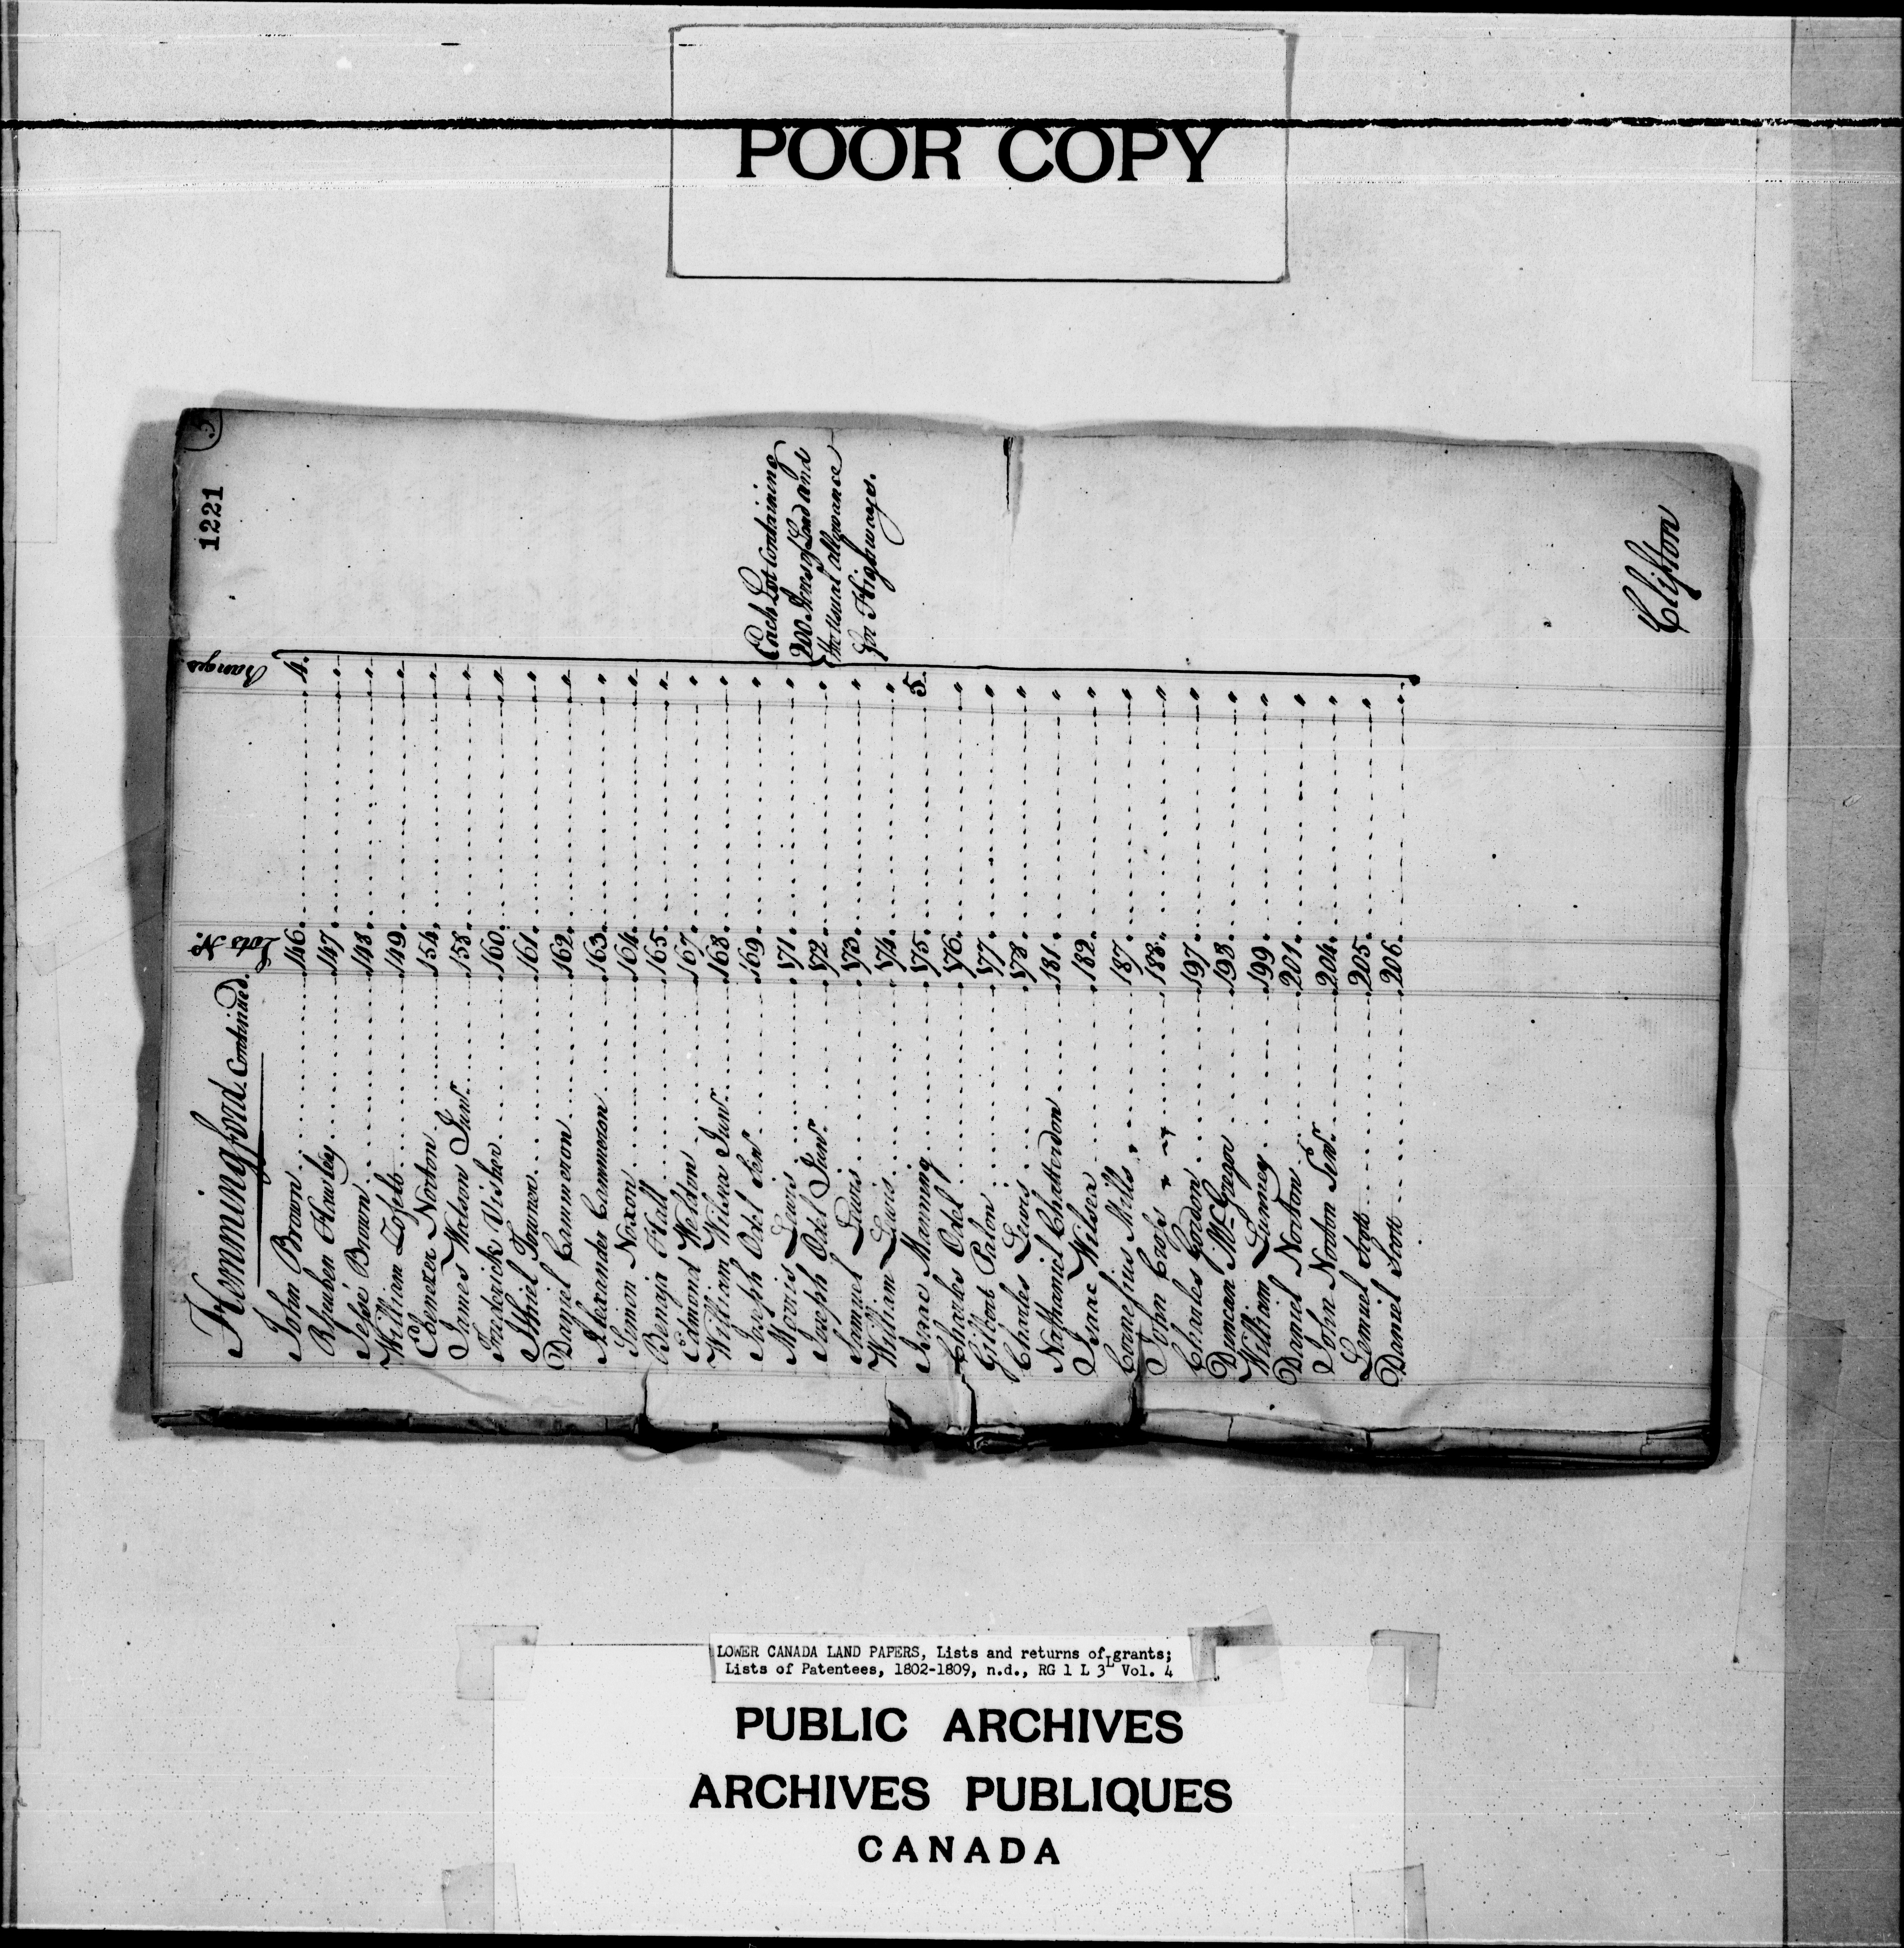 POOR COPY
1221
5
Hemmingford Continued.
Lots No. Ranges
John Brown 146 4.
Rhueben Hawley 147 "
Jessé Brown 148 "
William 149 "
Ebenezer Norton 154 "
James Watson Junr. 158 "
Frederick Visher 160 "
Ithiel Towner 161 "
Daniel Cammeron 162 "
Alexander Cammeron 163 "
Simon Noxon 164 "
Benajn Hall 165 "
Edmond Weldon 167 "
William Wilsea Junr. 168 "
Joseph Odel Senr 169 "
Morris Lewis 171 "
Joseph Odel Junr. 172 "
Samuel Lewis 173 "
William Lewis 174 "
Isaac Manning 175 5.
Charles Odel 176 "
Gilbert Palon 177 "
Charles Lewis 178 "
Nathaniel Chatterdon 181 "
Isaac Wilsea 182 "
Cornelius Mills 187 "
John Cross 188 "
Charles Gordon 197 "
Duncan McGregor 198 "
William Lumney 199 "
Daniel Norton 201 "
John Norton Senr. 204 "
Lemuel Scott 205 "
Daniel Scott 206 "
Each Lot Containing
200 Acres of Land and
the Usual allowance
for Highways.
Clifton
LOWER CANADA LAND PAPERS, Lists and returns of grants;
Lists of Patentees, 1802-1809, n.d., RG 1 L 3L Vol. 4
PUBLIC ARCHIVES
ARCHIVES PUBLIQUES
CANADA